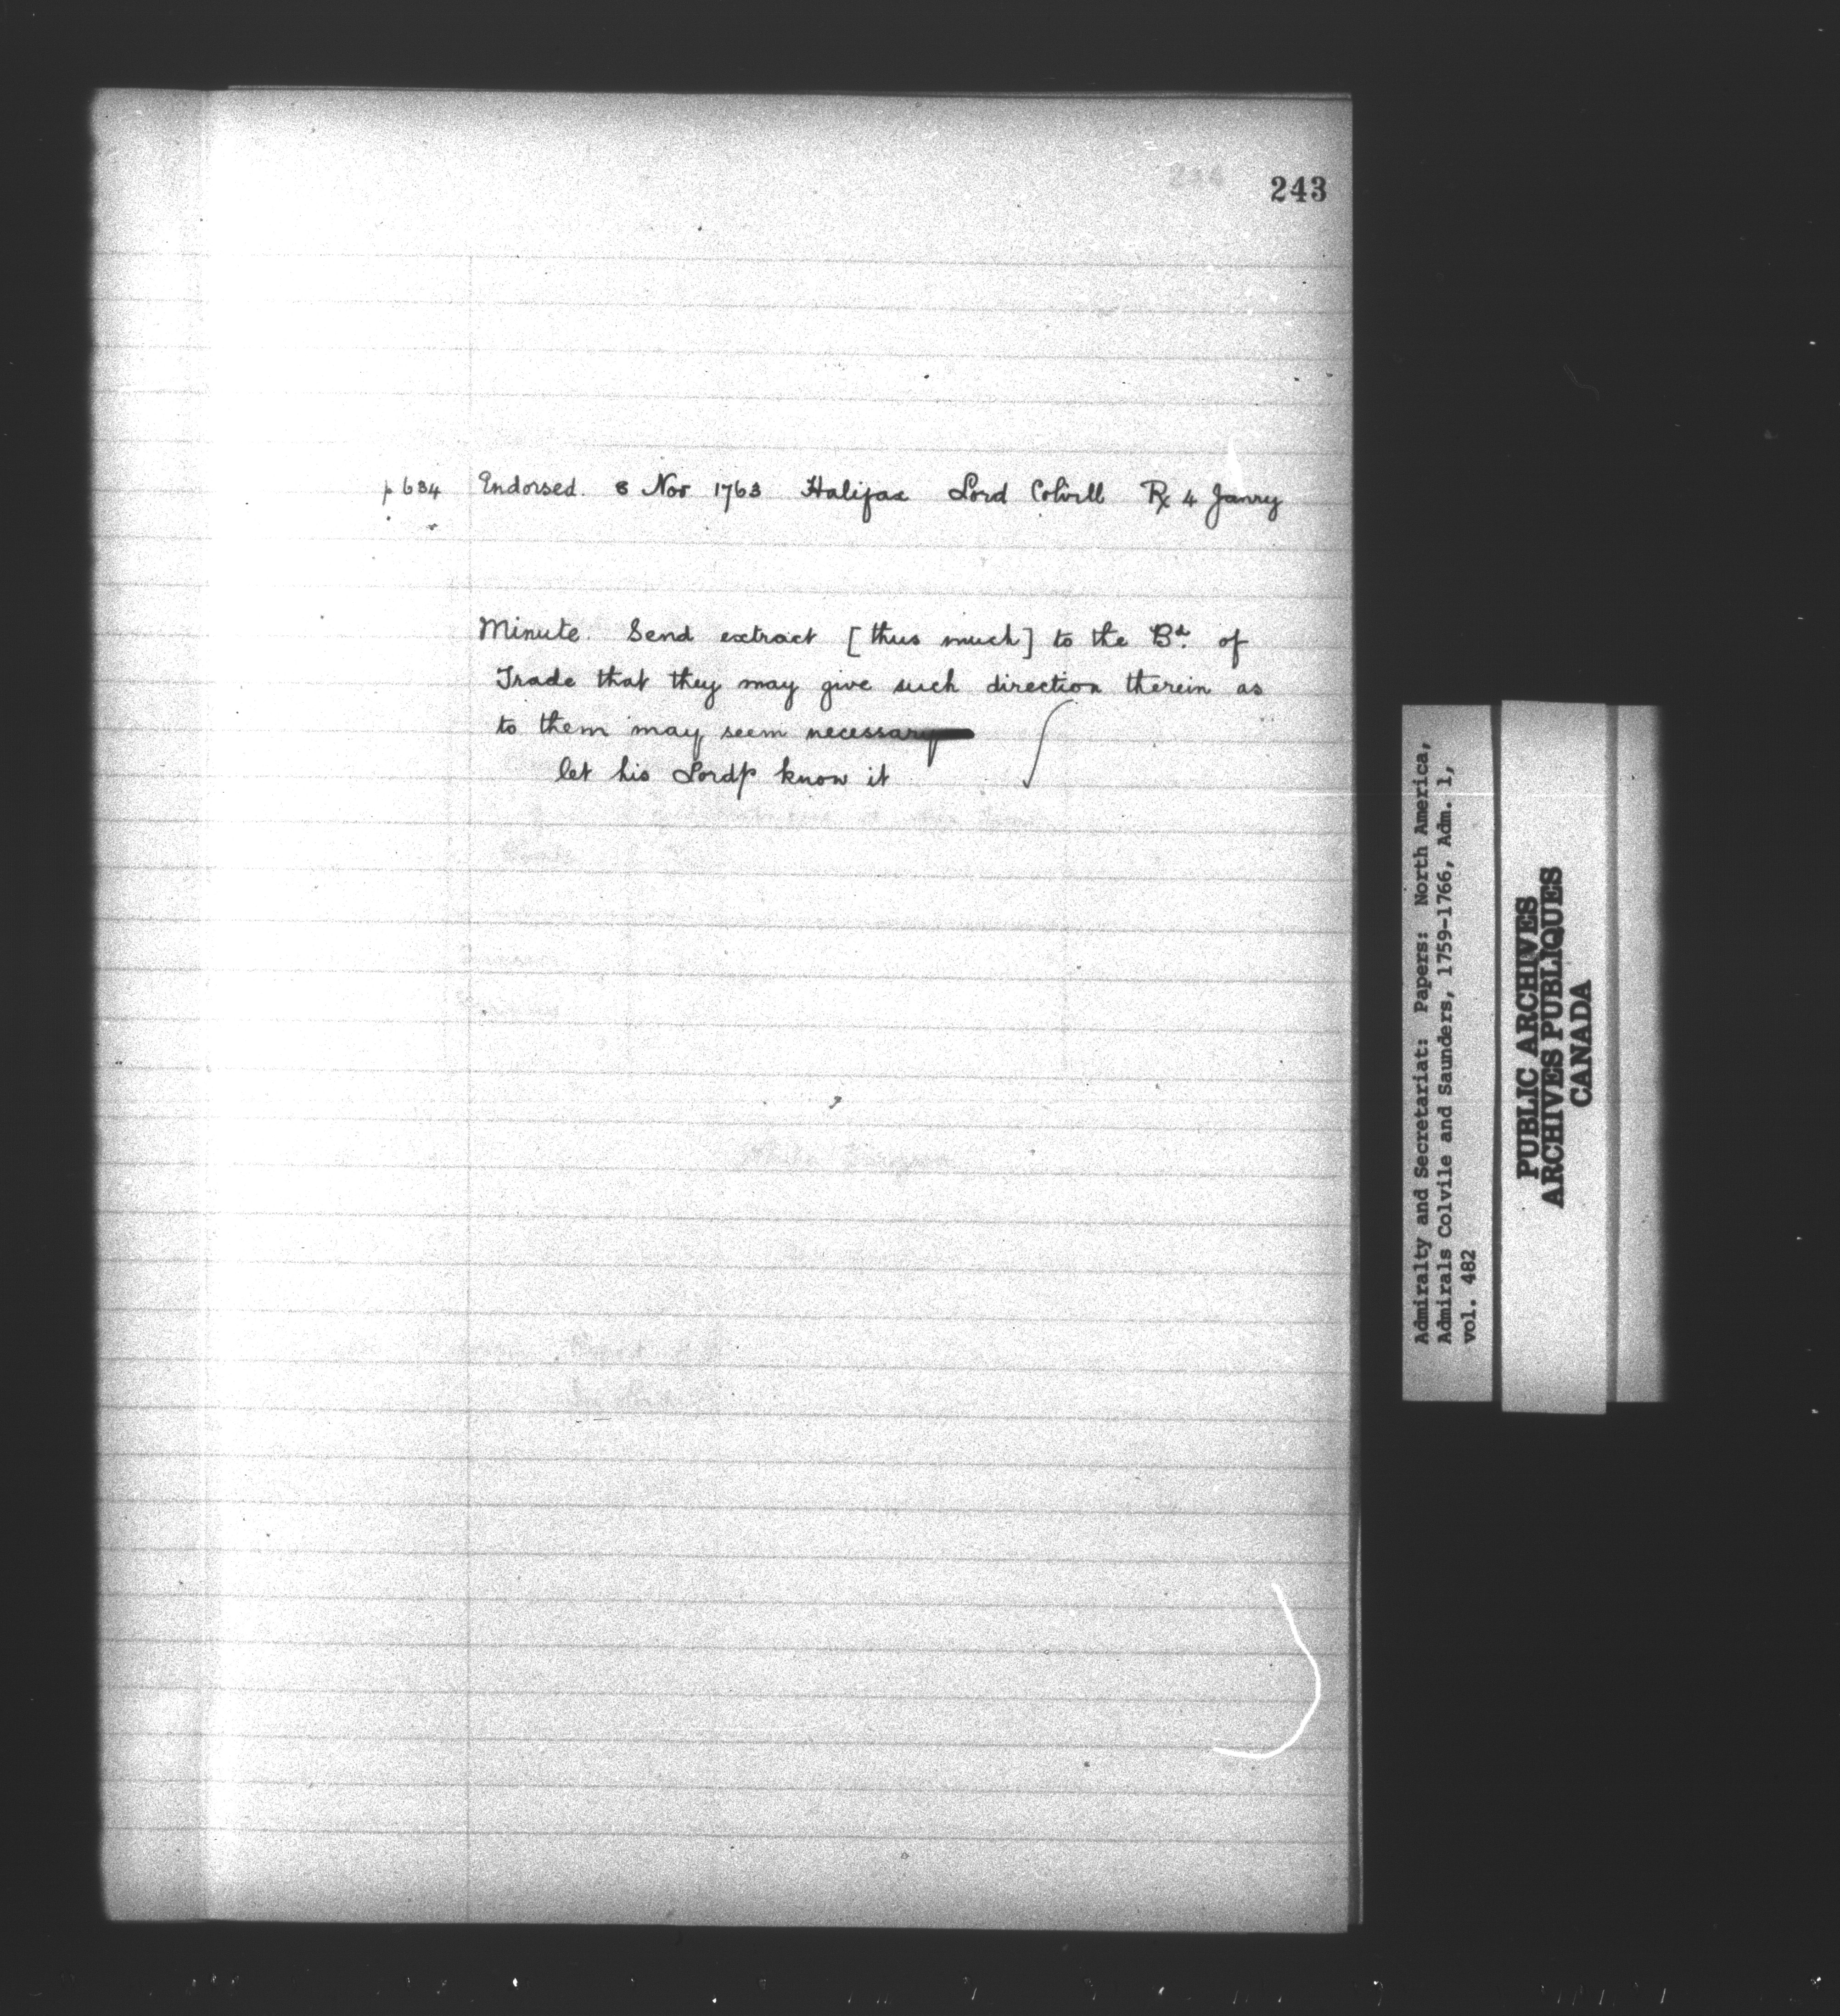 243
p 634 Endorsed. 8 Nov 1763 Halifax Lord Colvill Rx 4 Janry
Minute. Send extract [thus much] to the Bd. of
Trade that they may give such direction therein as
to them may seem necessary
let his Lordp know it
Admiralty and Secretariat: Papers: North America,
Admirals Colvile and Saunders, 1759-1766, Adm. 1,
vol. 482
PUBLIC ARCHIVES
ARCHIVES PUBLIQUES
CANADA